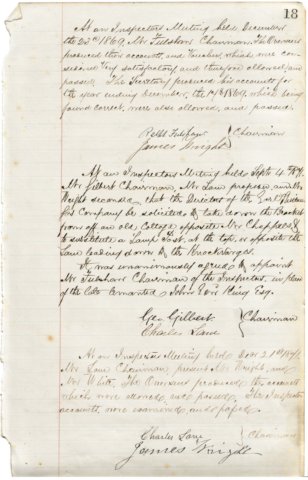 13
At an Inspectors Meeting held December
the 23rd 1869, Mr Fulshaw Chairman. The Overseers
produced their accounts, and Vouchers, which were con
sidered very satisfactory and therefore allowed, and
passed. The Secretary produced his accounts for
the year ending December, the 1869, which being
found correct, were also allowed, and passed.
Robt Fulshaw } Chairman
James Wright
At an Inspectors Meeting held Septr 4th
Mr Gilbert Chairman, Mr Law proposed and Mr
Wright seconded, that the Director of the
Gas Company be solicited to take down the Bracket
from off an old Cottage opposite Mr Choppers &
to substitute a Lamp Post, at the top, or opposite the
Lane leading down to the
It was unanimously agreed to appoint
Mr Fulshaw Chairman of the Inspectors, in place
of the late lamented John King Esq.
Geo Gilbert } Chairman
Charles Lane
At an Inspectors Meeting held Novr 21st
Mr Lane Chairman present Mr Wright, and
Mr White. The Overseers produced the accounts
which were allowed, and passed. The Inspectors
accounts, were examined and passed.
Charles Lane } Chairman
James Wright